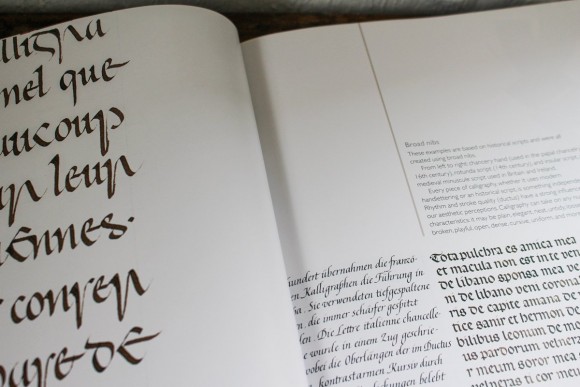 lligra
nel que
aucoup
leur
iennes.
conser
de
Broad nibs
These examples are based on historical scripts and were all
created using broad nibs.
From left to right: chancery hand (used in the papal
16th century), rotunda script (14th century), and insular script
medieval minuscule script used in Britain and Ireland.
Every piece of calligraphy whether it
handlettering or an historical script is something independent
Rhythm and stroke quality (ductus) have a strong influence
our aesthetic perceptions. Calligraphy can take on any
characteristics: it may be plain, elegant, neat, unruly,
broken, playful, open, dense, cursive, uniform, and
hundert übernahmen die franzö-
en Kalligraphen die Führung in
. Sie verwendeten tiefgespaltene
n, die immer schärfer gespitzt
den. Die Lettre italienne chancelle-
wurde in einem Zug geschrie-
wobei die Oberlängen der im Ductus
kontrastarmen Kursiv durch
belebt
Tota pulchra es amica mea
et macula non est in te veni
de libano sponsa mea ven
ni de libano veni corona
ris de capite amana de
tice sanir et hermon de
bilibus leonum de mo
us pardorum vulnera
r meum soror mea